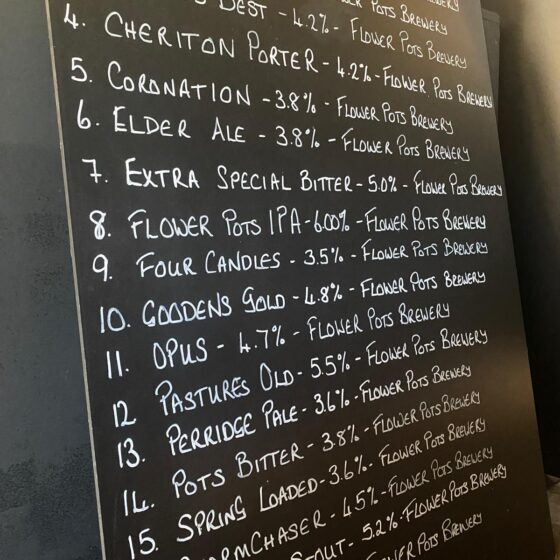 Best - 4.2% - Flower Pots Brewery
4. Cheriton Porter - 4.2% - Flower Pots Brewery
5. Coronation - 3.8% - Flower Pots Brewery
6. Elder Ale - 3.8% - Flower Pots Brewery
7. Extra Special Bitter - 5.0% - Flower Pots Brewery
8. Flower Pots IPA - 6.00% - Flower Pots Brewery
9. Four Candles - 3.5% - Flower Pots Brewery
10. Goodens Gold - 4.8% - Flower Pots Brewery
11. Opus - 4.7% - Flower Pots Brewery
12 Pastures Old - 5.5% - Flower Pots Brewery
13. Perridge Pale - 3.6% - Flower Pots Brewery
14. Pots Bitter - 3.8% - Flower Pots Brewery
15. Spring Loaded - 3.6% - Flower Pots Brewery
Stormchaser - 4.5% - Flower Pots Brewery
Stout - 5.2% - Flower Pots Brewery
Flower Pots Brewery